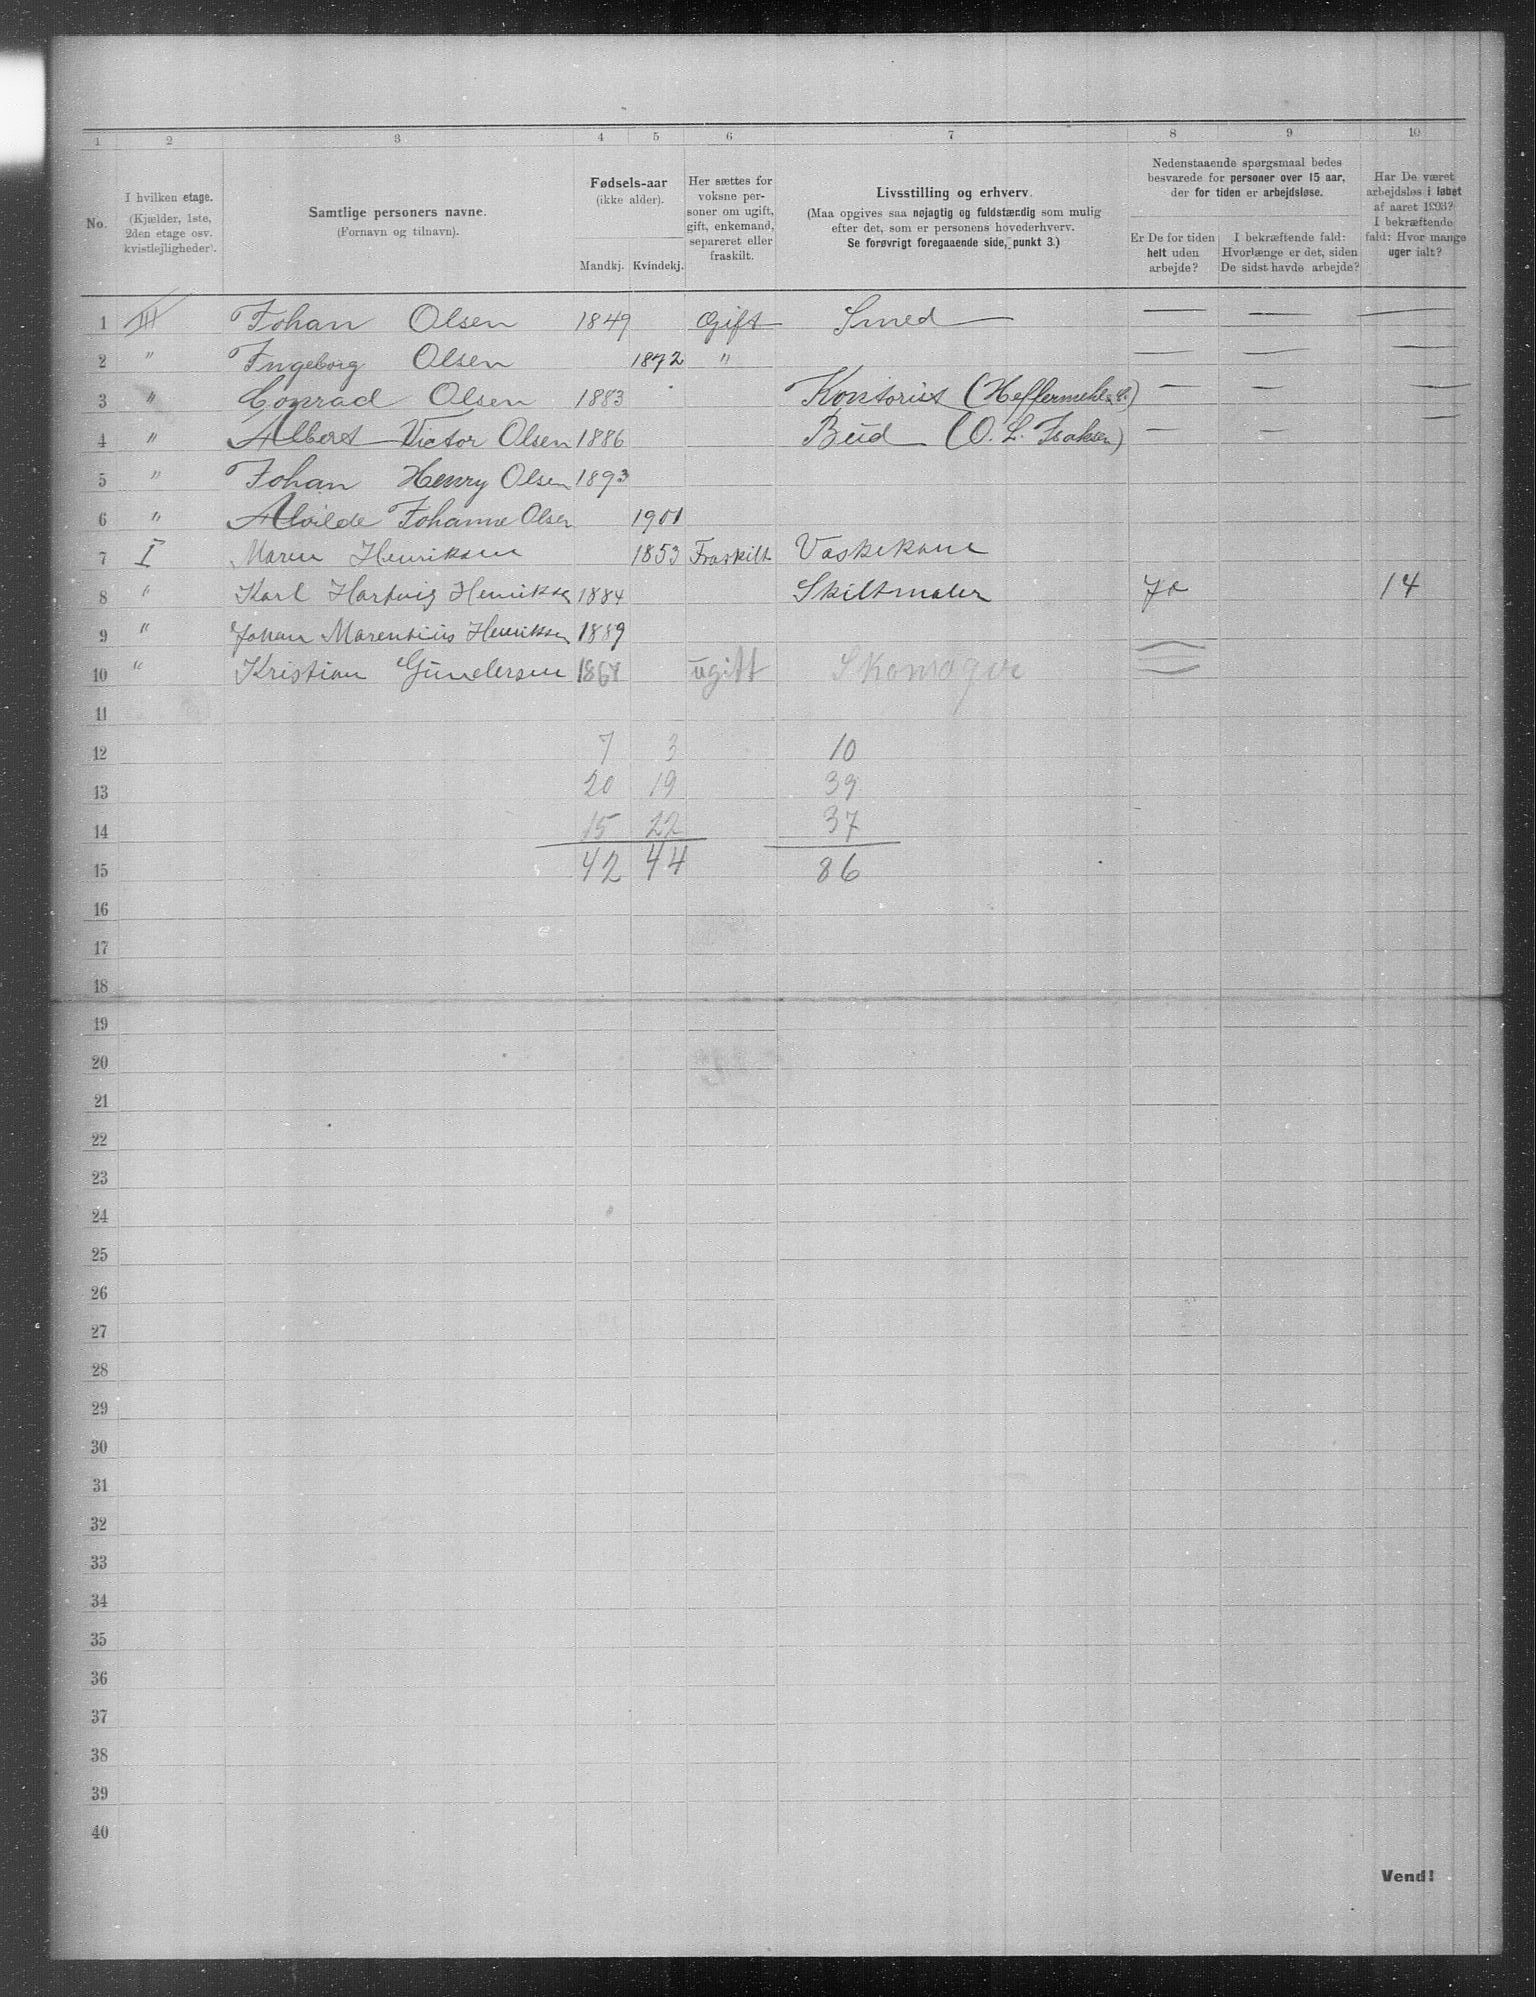 1 2 3 4 5 6 7 8 9 10
No.
I hvilken etage.
(Kjælder, 1ste,
2den etage osv.
kvistlejligheder).
Samtlige personers navne.
(Fornavn og tilnavn).
Fødsels-aar
(ikke alder).
Mandkj. Kvindekj.
Her sættes for
voksne per-
soner om ugift,
gift, enkemand,
separeret eller
fraskilt.
Livsstilling og erhverv.
(Maa opgives saa nøjagtig og fuldstændig som mulig
efter det, som er personens hovederhverv.
Se forøvrigt foregaaende side, punkt 3.)
Nedenstaaende spørgsmaal bedes
besvarede for personer over 15 aar,
der for tiden er arbejdsløse.
Er De for tiden
helt uden
arbejde?
I bekræftende fald:
Hvorlænge er det, siden
De sidst havde arbejde?
Har De været
arbejdsløs i løbet
af aaret 1903?
I bekræftende
fald: Hvor mange
uger ialt?
1 III Johan Olsen 1849 Gift Smed — — —
2 " Ingeborg Olsen 1872 " — — —
3 " Conrad Olsen 1883 Kontorist (Heffermehl — — —
4 " Albert Victor Olsen 1886 Bud (O. L. Isaksen) — — —
5 " Johan Henry Olsen 1893
6 " Alvilde Johanne Olsen 1901
7 I Maren Henriksen 1853 Fraskilt Vaskekone
8 " Karl Hartvig Henriksen 1884 Skiltmaler Ja 14
9 " Johan Marentius Henriksen 1889
10 " Kristian Gundersen ugift Skomager
11
12 7 3 10
13 20 19 39
14 15 22 37
15 42 44 86
16
17
18
19
20
21
22
23
24
25
26
27
28
29
30
31
32
33
34
35
36
37
38
39
40
Vend!